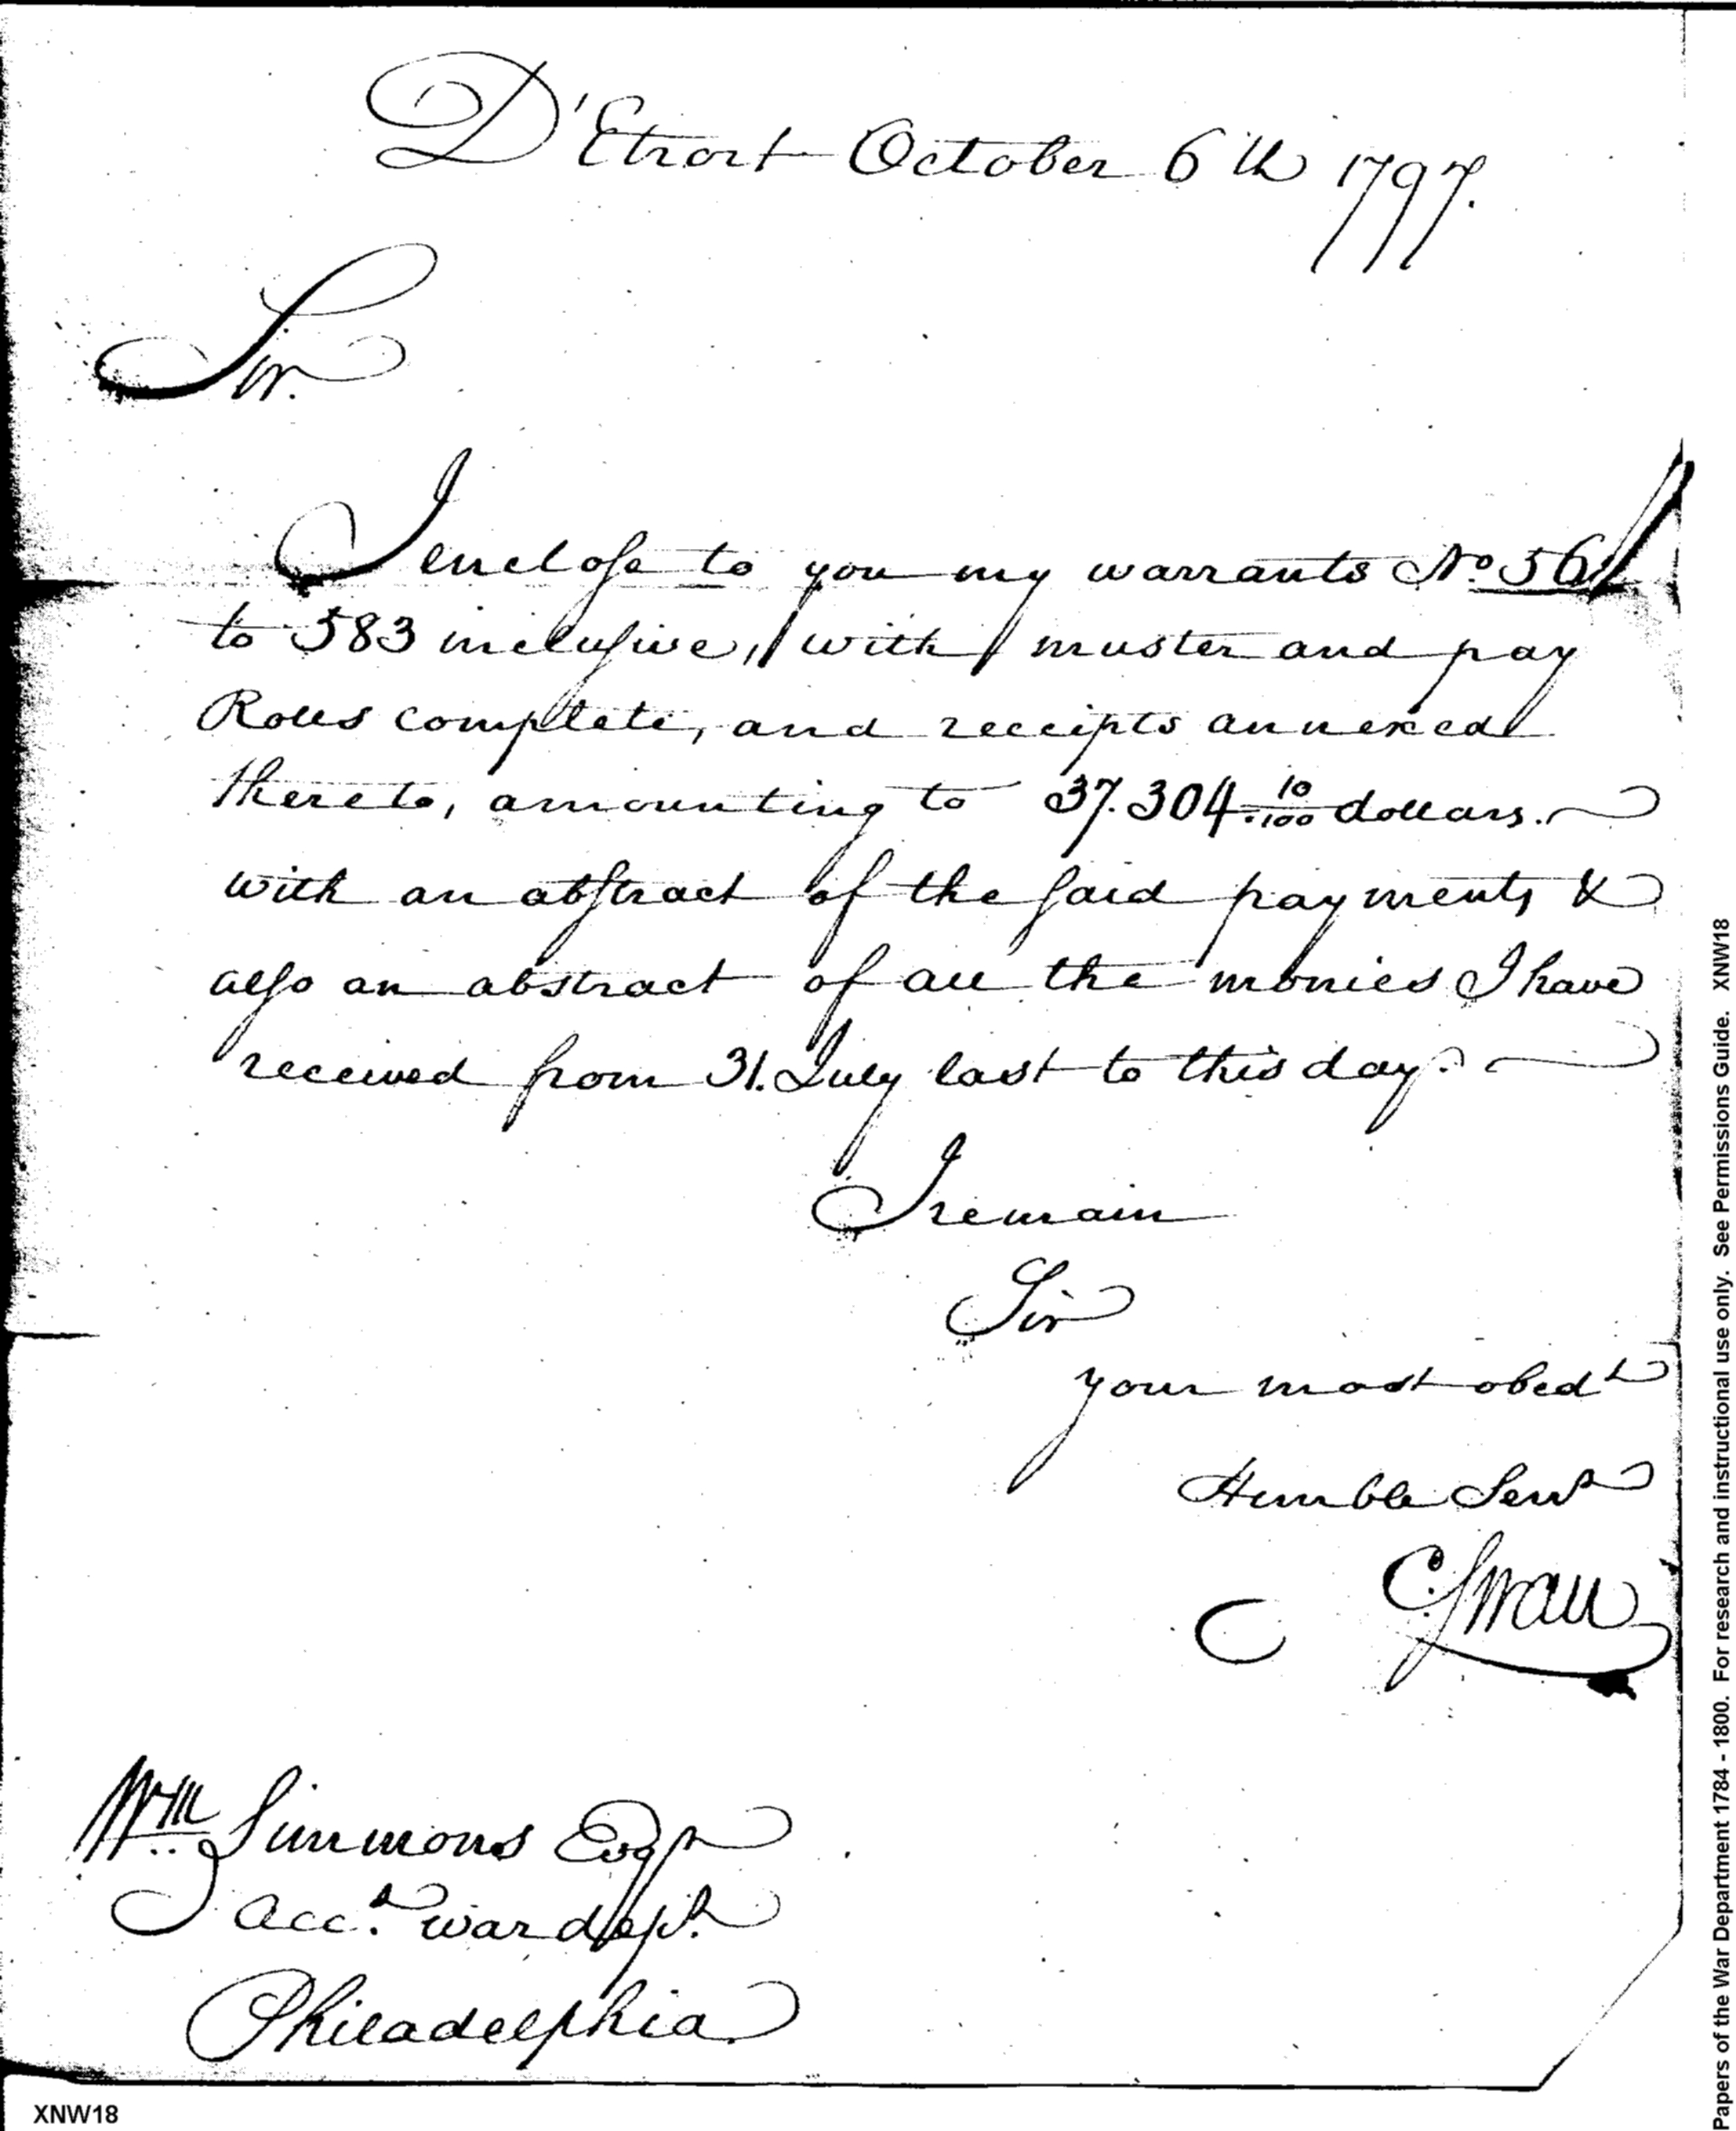 D'Etroit October 6th 1797.
Sir.
I enclose to you my warrants No. 561
to 583 inclusive, with muster and pay
Rolls complete, and receipts annexed
thereto, amounting to 37.304.10/100 dollars.
with an abstract of the said payments &
also an abstract of all the monies I have
received from 31. July last to this day.
I remain
Sir
your most obedt
Humble Servt
C. Swan
Wm Simmons Esqr
Acct. war dept.
Philadelphia
XNW18
Papers of the War Department 1784 - 1800. For research and instructional use only. See Permissions Guide. XNW18